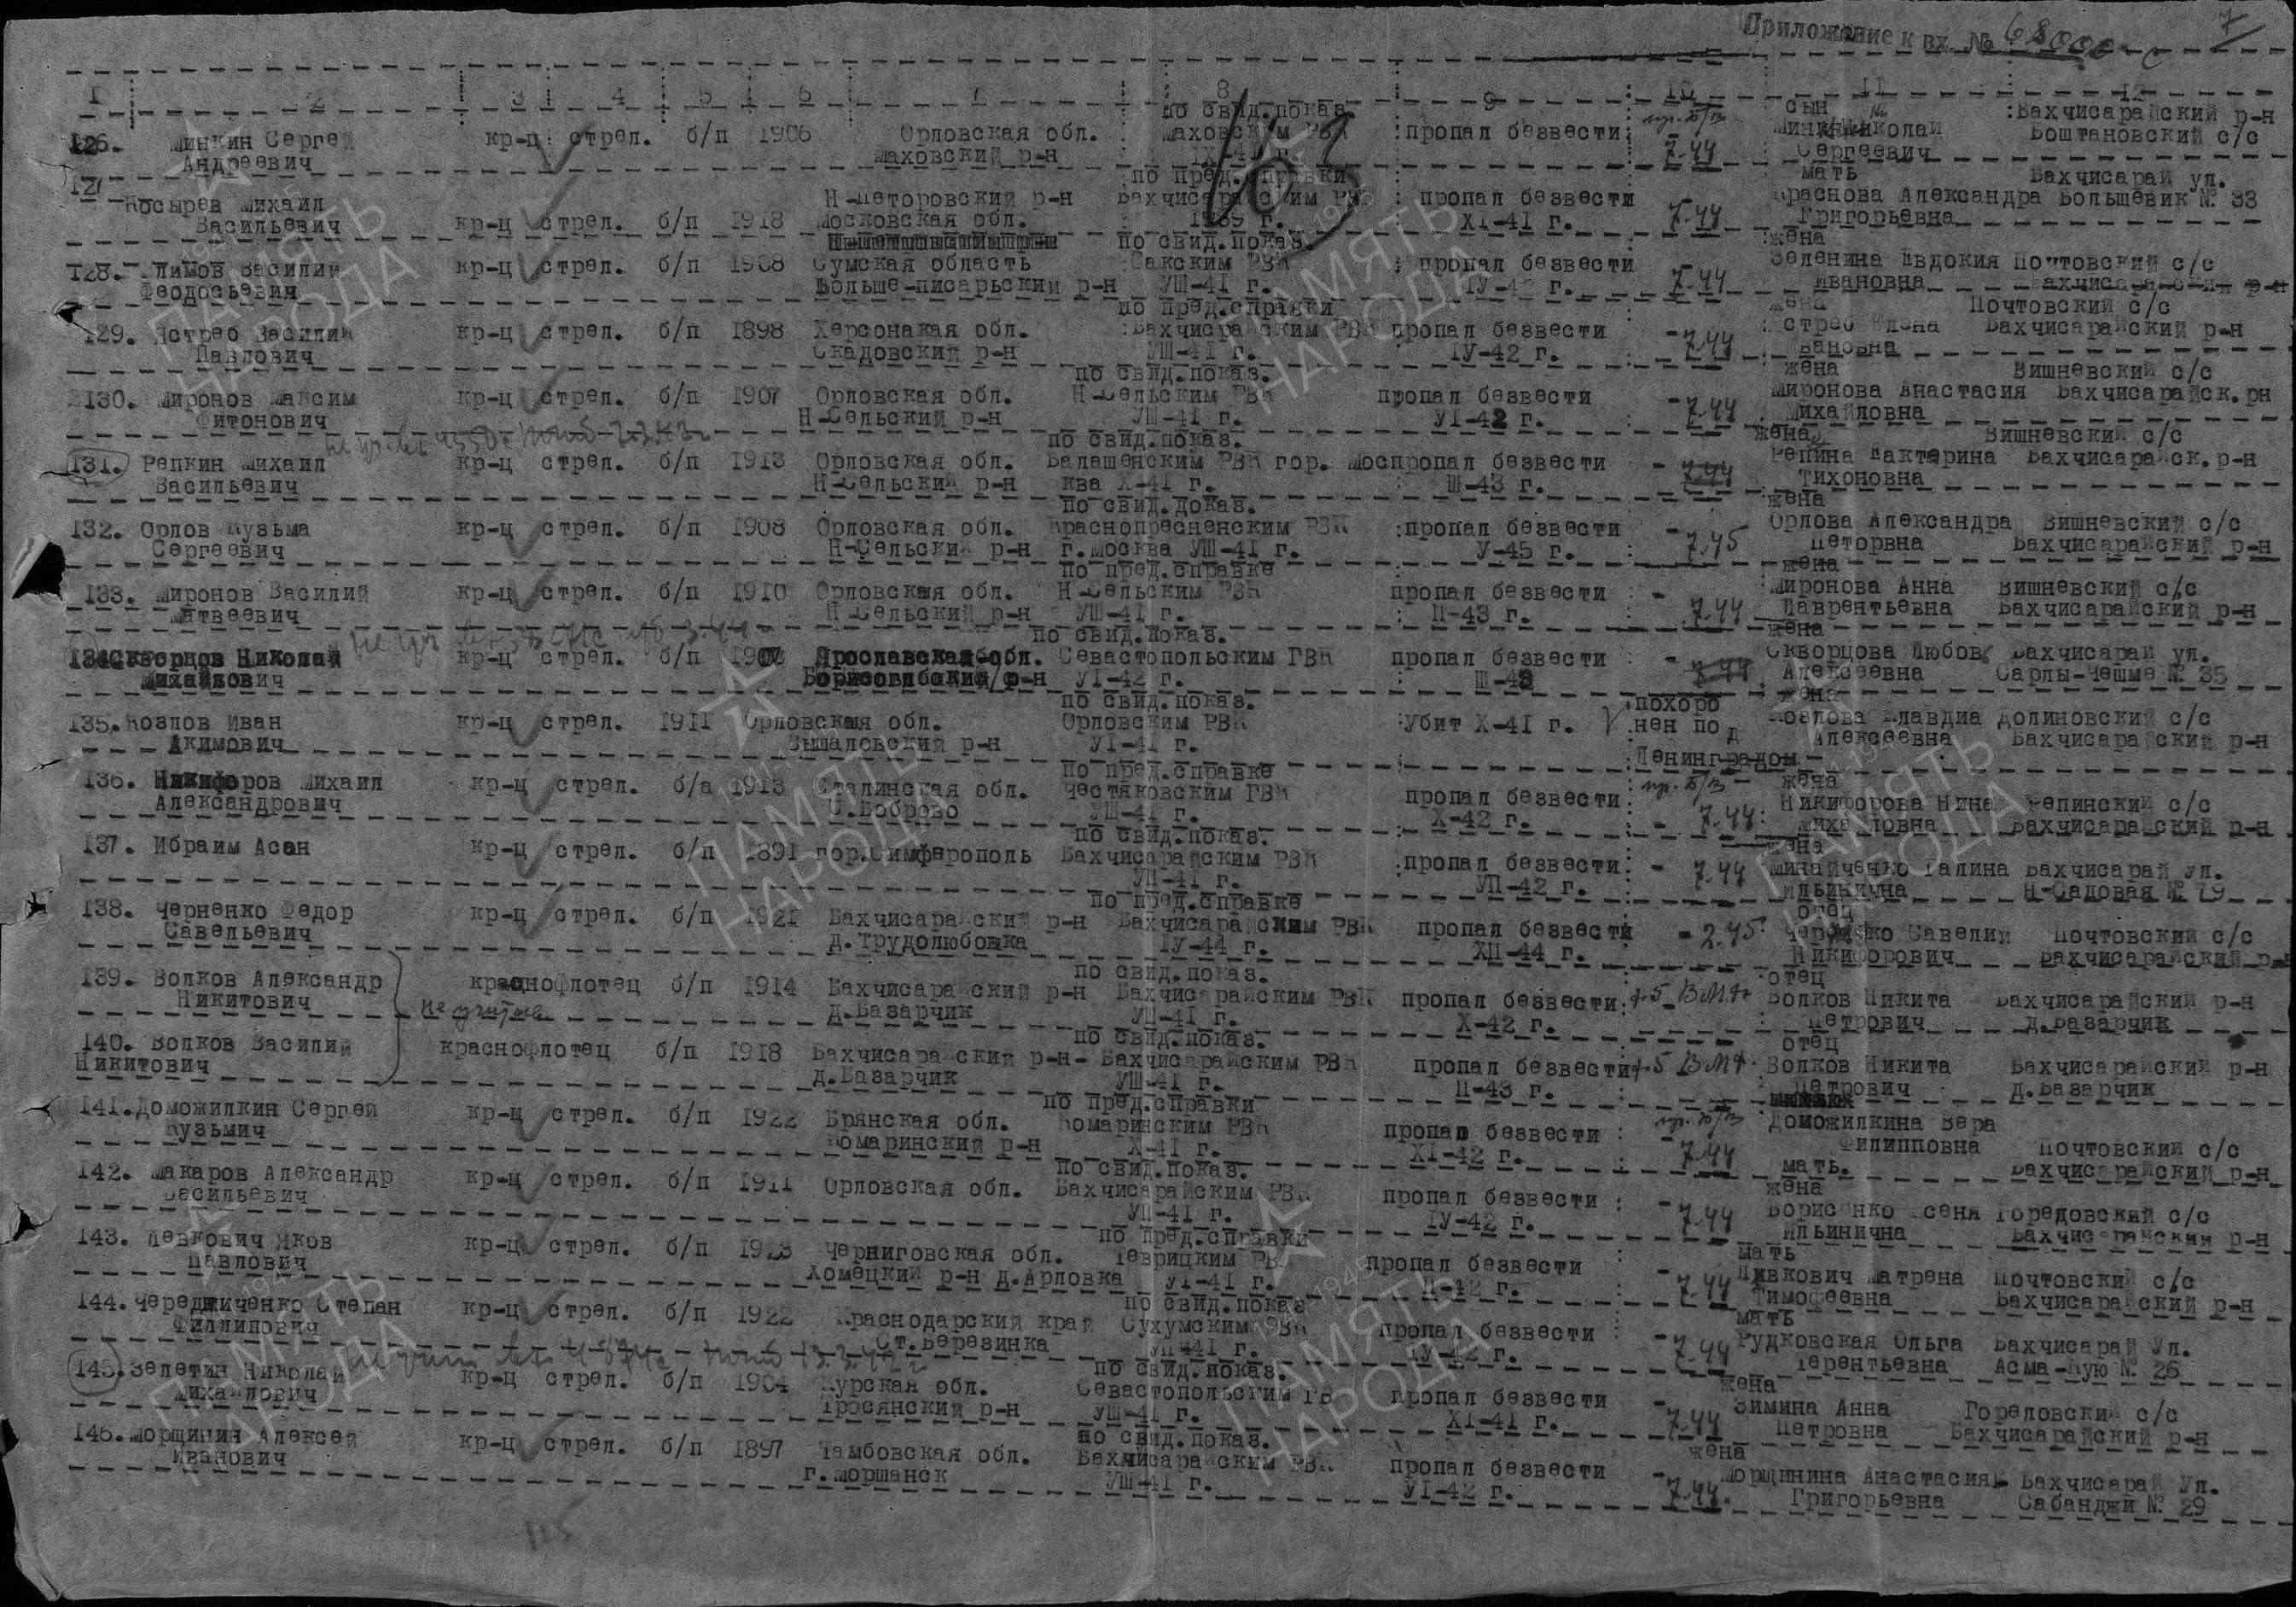 Приложение к вх. № 68000 с 7
1 2 3 4 5 6 7 8 9 10 11 12
126. Минкин Сергей кр-ц стрел. б/п 1906 Орловская обл. по свид.показ. пропал безвести сын Бахчисарайский р-н
Андреевич Маховский р-н Маховским РВК 7.44 Николай Боштановский с/с
IX-41 г. Сергеевич
127 Косырев Михаил Н-Петоровский р-н по пред.справки пропал безвести мать Бахчисарай ул.
Васильевич кр-ц стрел. б/п 1918 Московская обл. Бахчисарайским РВК XI-41 г. 7.44 Краснова Александра Большевик № 33
1939 г. Григорьевна
128. Климов Василий кр-ц стрел. б/п 1908 Сумская область по свид.показ. пропал безвести жена
Феодосьевич Больше-писарьский р-н Сакским РВК 7.44 Зеленина Евдокия Почтовский с/с
УШ-41 г. IУ-42 г. Ивановна Бахчисарайский р-н
129. Ястреб Василий кр-ц стрел. б/п 1898 Херсонакая обл. по пред.справки пропал безвести жена Почтовский с/с
Павлович Скадовский р-н Бахчисарайским РВК IУ-42 г. - 7.44 Ястреб Елена Бахчисарайский р-н
УШ-41 г. Ивановна
130. Миронов Максим кр-ц стрел. б/п 1907 Орловская обл. по свид.показ. пропал безвести жена Вишневский с/с
Фитонович Н-Сельский р-н Н-Сельским РВК УI-42 г. - 7.44 Миронова Анастасия Бахчисарайск.рн
УШ-41 г. Михайловна
131. Репкин Михаил кр-ц стрел. б/п 1913 Орловская обл. по свид.показ. пропал безвести жена Вишневский с/с
Васильевич Н-Сельский р-н Балашенским РВК гор. Мос Ш-43 г. - 7.44 Репина Екактерина Бахчисарайск.р-н
ква X-41 г. Тихоновна
132. Орлов Кузьма кр-ц стрел. б/п 1908 Орловская обл. по свид.доказ. пропал безвести жена
Сергеевич Н-Сельский р-н Краснопресненским РВК У-45 г. - 7.45 Орлова Александра Вишневский с/с
г.Москва УШ-41 г. Петорвна Бахчисарайский р-н
133. Миронов Василий кр-ц стрел. б/п 1910 Орловская обл. по пред.справке пропал безвести жена
Матвеевич Н-Сельский р-н Н-Сельским РВК П-43 г. - 7.44 Миронова Анна Вишневский с/с
УШ-41 г. Лаврентьевна Бахчисарайский р-н
134 Скворцов Николай кр-ц стрел. б/п Ярославская обл. по свид.показ. пропал безвести жена
Михайлович Борисоглбский р-н Севастопольским ГВК Ш-43 - 7.44 Скворцова Любовь Бахчисарай ул.
УI-42 г. Алексеевна Сарлы-Чешме № 35
135. Козлов Иван кр-ц стрел. 1911 Орловская обл. по свид.показ. Убит X-41 г. похоро жена
Акимович Орловским РВК нен под Козлова Клавдиа Долиновский с/с
УI-41 г. Ленинградом Алексеевна Бахчисарайский р-н
136. Никифоров Михаил кр-ц стрел. б/а 1913 Сталинская обл. по пред.справке пропал безвести жена
Александрович С.Боброво Честяковским РВК X-42 г. - 7.44 Никифорова Нина Репинский с/с
УШ-41 г. Михайловна Бахчисарайский р-н
137. Ибраим Асан кр-ц стрел. б/п 1891 гор.Симферополь по свид.показ. пропал безвести жена
Бахчисарайским РВК УП-42 г. - 7.44 Минайченко Галина Бахчисарай ул.
УП-41 г. Ильинична Н-Садовая № 79
138. Черненко Федор кр-ц стрел. б/п 1921 Бахчисарайский р-н по пред.справке пропал безвести отец
Савельевич д.Трудолюбовка Бахчисарайским РВК ХП-44 г. - 2.45 Черненко Савелий Почтовский с/с
IУ-44 г. Никифорович Бахчисарайский р-н
139. Волков Александр краснофлотец б/п 1914 Бахчисарайский р-н по свид.показ. пропал безвести отец
Никитович д.Базарчик Бахчисарайским РВК X-42 г. Волков Никита Бахчисарайский р-н
УП-41 г. Петрович д.Базарчик
140. Волков Василий краснофлотец б/п 1918 Бахчисарайский р-н- по свид.показ. пропал безвести отец
Никитович д.Базарчик Бахчисарайским РВК П-43 г. Волков Никита Бахчисарайский р-н
УШ-41 г. Петрович д.Базарчик
141. Доможилкин Сергей кр-ц стрел. б/п 1922 Брянская обл. по пред.справки пропал безвести Доможилкина Вера
Кузьмич Комаринский р-н Комаринским РВК XI-42 г. - 7.44 Филипповна Почтовский с/с
X-41 г. мать. Бахчисарайский р-н
142. Макаров Александр кр-ц стрел. б/п 1911 Орловская обл. по свид.показ. пропал безвести жена
Васильевич Бахчисарайским РВК IУ-42 г. - 7.44 Борисенко Ксеня Горедовский с/с
УП-41 г. Ильинична Бахчисарайский р-н
143. Левкович Яков кр-ц стрел. б/п 1923 Черниговская обл. по пред.справки пропал безвести мать
Павлович Хомецкий р-н д.Арловка Теврицким РВК П-42 г. - 7.44 Ливкович Матрена Почтовский с/с
УI-41 г. Тимофеевна Бахчисарайский р-н
144. Чередниченко Степан кр-ц стрел. б/п 1922 Краснодарский край по свид.показ пропал безвести мать
Филлипович Ст.Березинка Сухумским РВК IУ-42 г. - 7.44 Рудковская Ольга Бахчисарай Ул.
УП-41 г. Терентьевна Асма-Кую № 26
145. Зелетин Николай кр-ц стрел. б/п 1904 Курская обл. по свид.показ. пропал безвести жена
Михайлович Тросянский р-н Севастопольским ГВК XI-41 г. - 7.44 Зимина Анна Гореловский с/с
УШ-41 г. Петровна Бахчисарайский р-н
146. Морщинин Алексей кр-ц стрел. б/п 1897 Тамбовская обл. по свид.показ. пропал безвести жена
Иванович г.Моршанск Бахчисарайским РВК УI-42 г. - 7.44. Морщинина Анастасия Бахчисарай Ул.
УШ-41 г. Григорьевна Сабанджи № 29
ПАМЯТЬ
НАРОДА